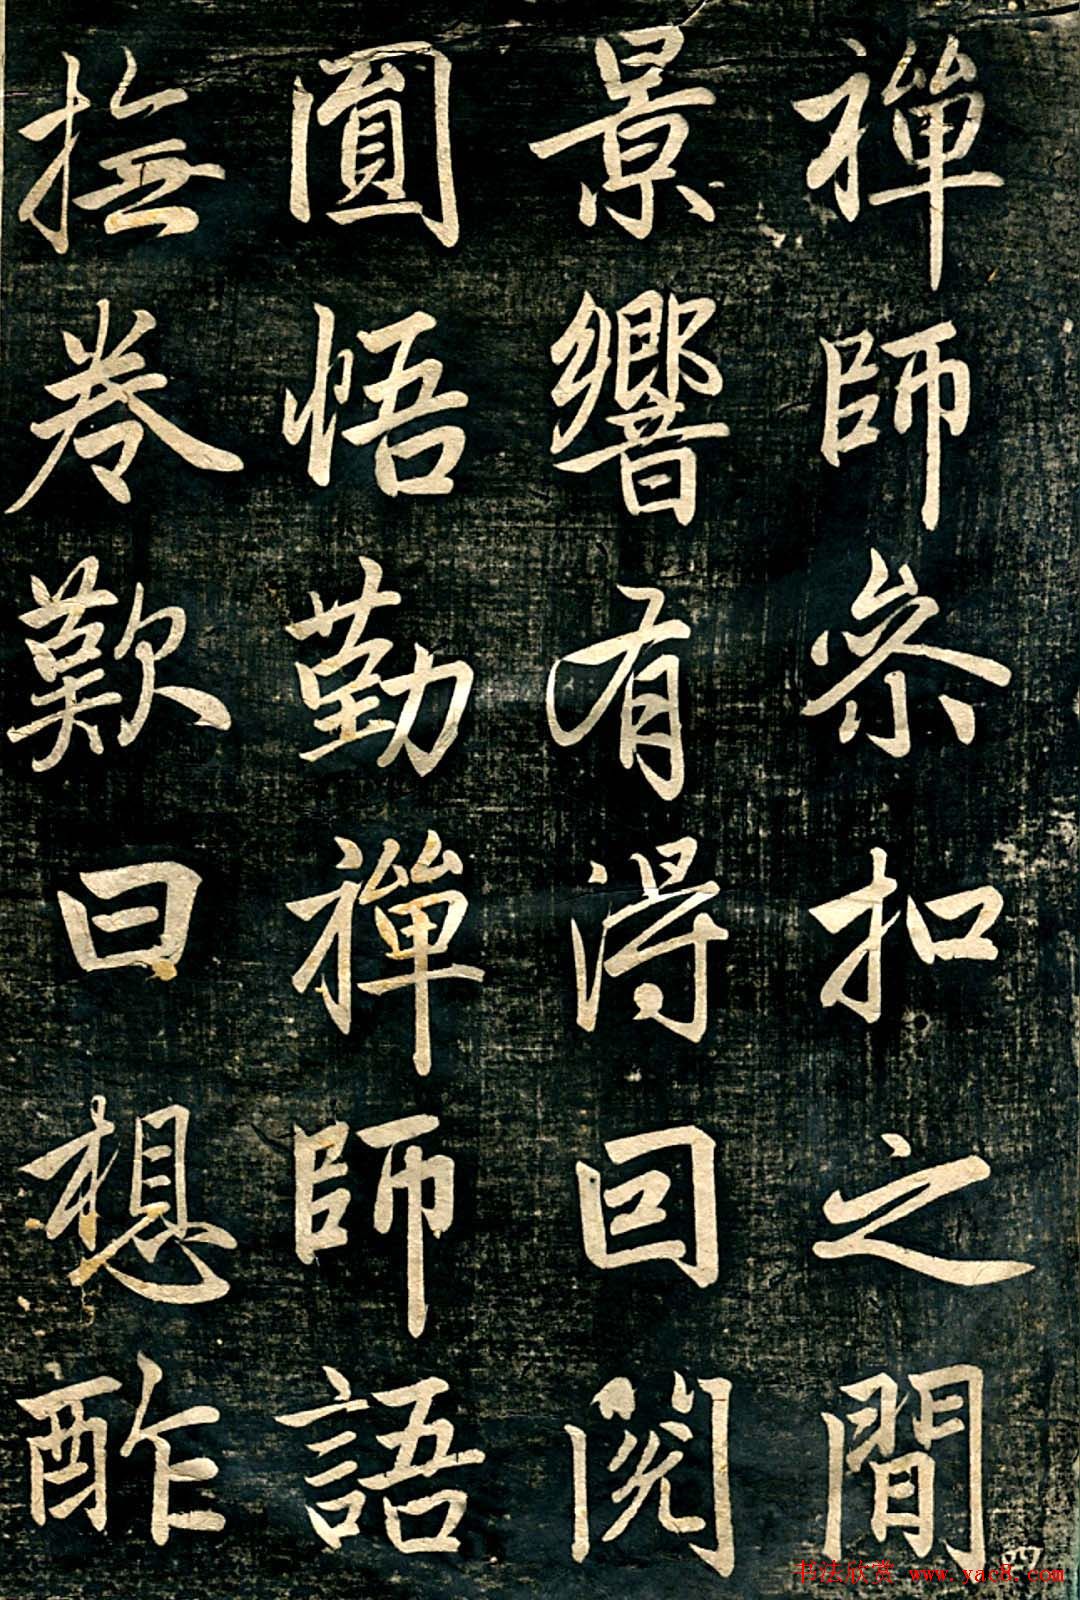 禪師參扣之間
景響有得回閱
圓悟勤禪師語
撫卷歎曰想酢
四
书法欣赏 www.yac8.com